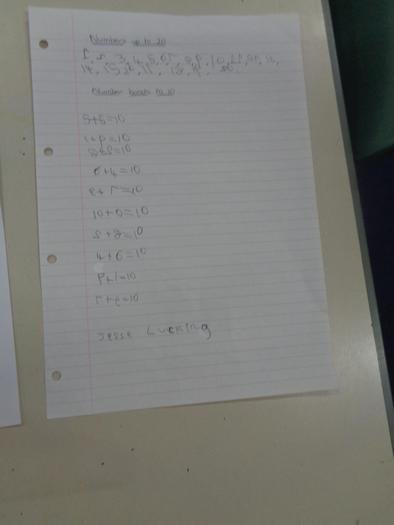 Numbers up to 20
1, 2, 3, 4, 5, 6, 7, 8, 9, 10, 11, 12, 13,
14, 15, 16, 17, 18, 19, 20.
Number bonds to 10
5+5=10
1+9=10
2+8=10
6+4=10
3+7=10
10+0=10
8+2=10
4+6=10
9+1=10
7+3=10
Jesse Lucking